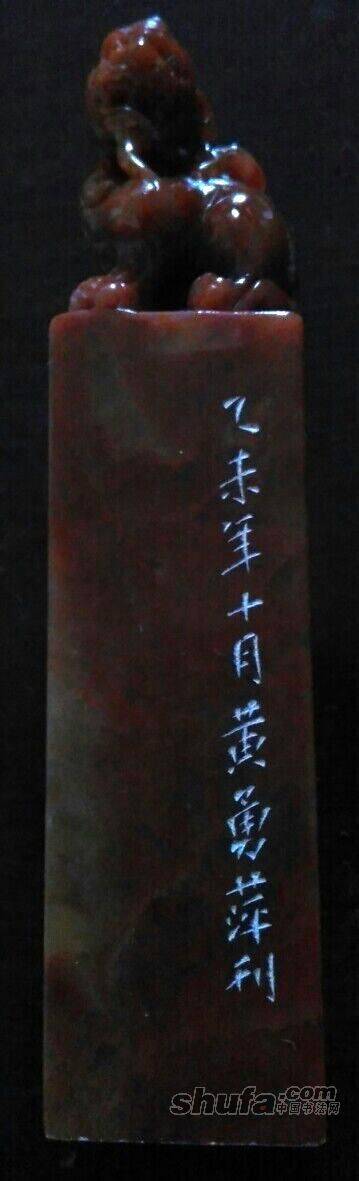 乙未年十月黄勇萍利
shufa.com
中国书法网